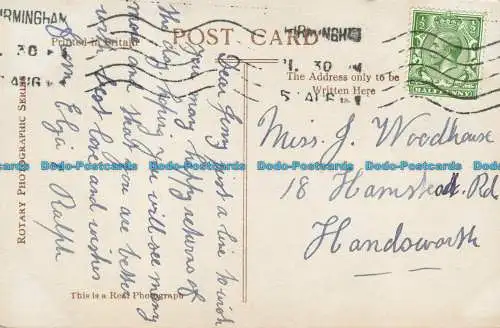 BIRMINGHAM
1. 30
AUG
BIRMINGHAM
1. 30
5 AUG
HALFPENNY
POST CARD
Printed in Britain
The Address only to be
Written Here
ROTARY PHOTOGRAPHIC SERIES
This is a Real Photograph
Dear Jenny just a line to wish
you many happy returns of
the day, hoping you will see many
more and that you are better
with best love and wishes
from Elja Ralph
Miss. J. Woodhouse
18 Hamstead. Rd
Handsworth
Dodo-Postcards Dodo-Postcards Dodo-Postcards
Dodo-Postcards Dodo-Postcards Dodo-Postcards
Dodo-Postcards Dodo-Postcards Dodo-Postcards